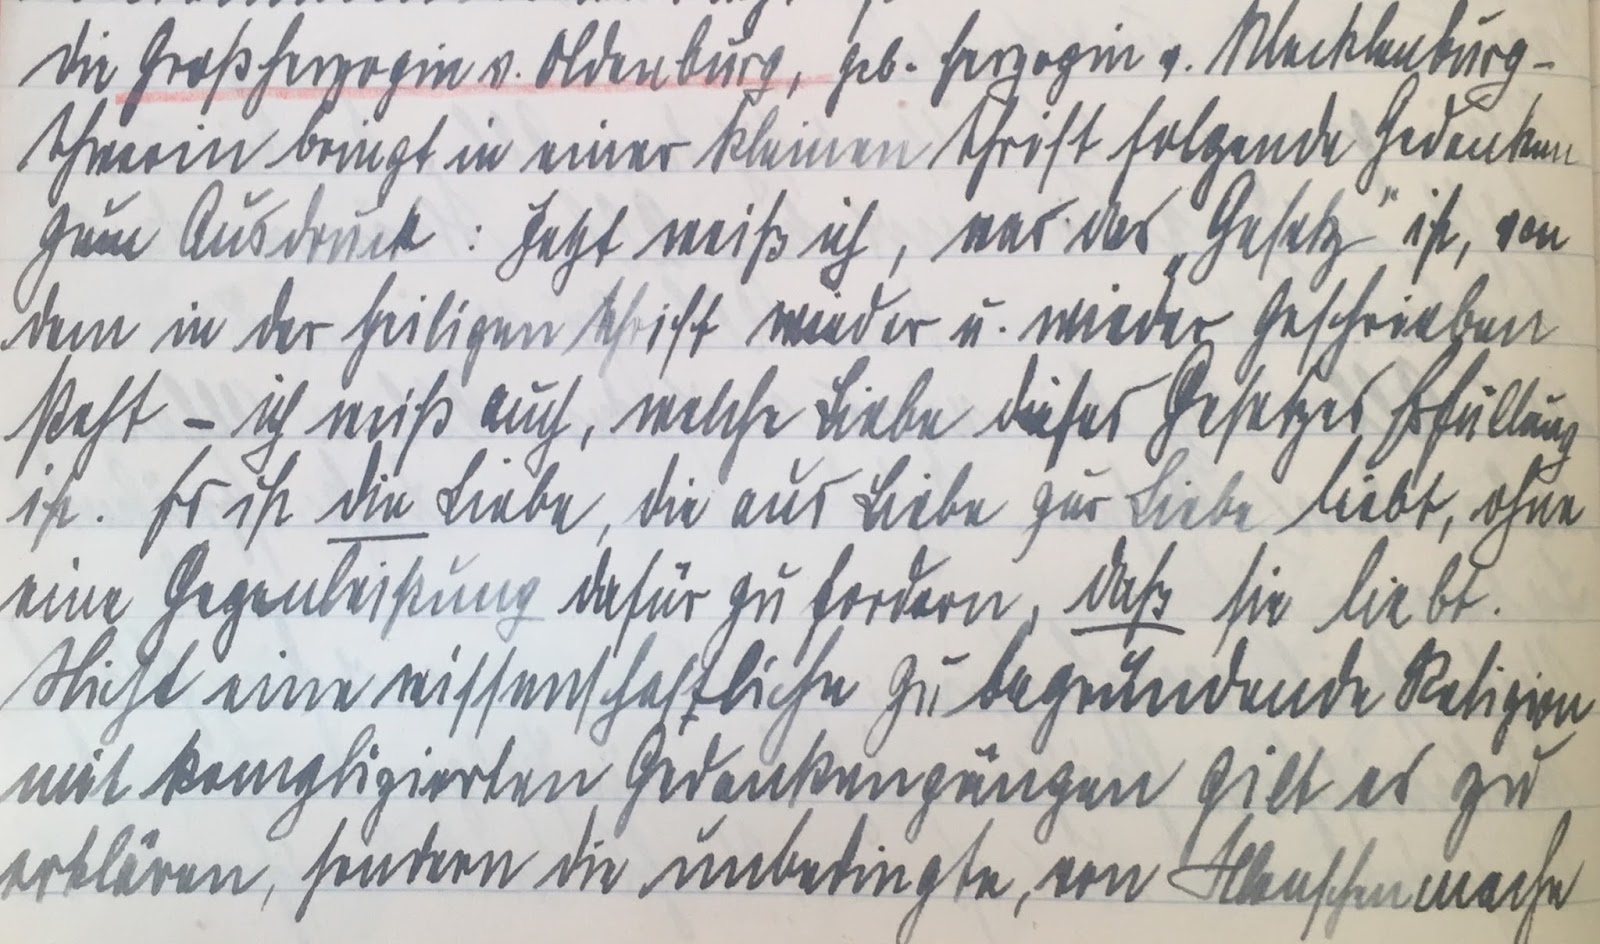 die Großherzogin v. Oldenburg, geb. Herzogin v. Mecklenburg-
Schwerin bringt in einer kleinen Schrift folgende Gedanken
zum Ausdruck: Jetzt weiß ich, was das „Gesetz" ist, von
dem in der heiligen Schrift wieder u. wieder geschrieben
steht – ich weiß auch, welche Liebe dieses Gesetzes Erfüllung
ist. Es ist die Liebe, die aus Liebe zur Liebe liebt, ohne
eine Gegenleistung dafür zu fordern, daß sie liebt.
Nicht eine wissenschaftliche zu begründende Religion
mit komplizierten Gedankengängen gilt es zu
erklären, sondern die unbedingte, von Menschen